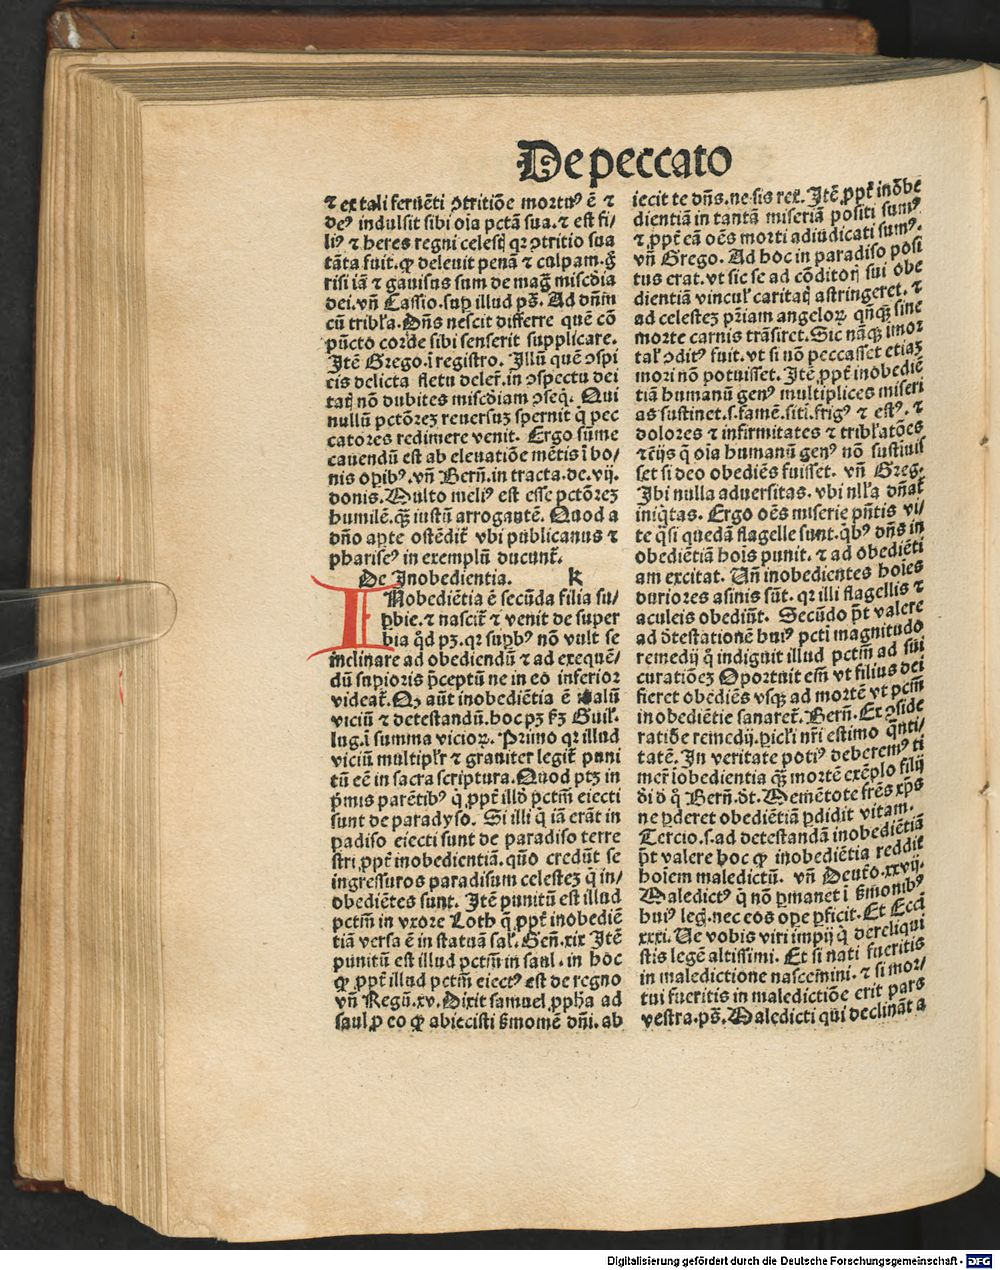 De peccato
⁊ ex tali feruēti ꝯtritiōe mortuꝰ ē ⁊
deꝰ indulsit sibi oīa pctā sua. ⁊ est fi⸗
liꝰ ⁊ heres regni celestꝭ qꝛ ꝯtritio sua
tāta fuit. ꝙ deleuit penā ⁊ culpam. g̃
risi iā ⁊ gauisus sum de mag̃ miscdīa
dei. vn̄ Cassio. suꝑ illud ps̄. Ad dn̄m
cū tribl̓a. Dn̄s nescit differre quē cō
pūcto corde sibi senserit supplicare.
Itē Grego. ī registro. Illū quē ꝯspi
cis delicta fletu deler̄. in ꝯspectu dei
tatꝭ nō dubites miscdīam ꝯseq̄. Qui
nullū pctōreꝫ reuersuꝫ spernit q̇ pec
catores redimere venit. Ergo sūme
cauendū est ab eleuatiōe mētis ī bo⸗
nis oꝑibꝰ. vn̄ Bern̄. in tracta. de. vij.
donis. Multo meliꝰ est esse pctōreꝫ
humilē. qꝫ̄ iustū arrogantē. Quod a
dn̄o apte ostēdit᷑ vbi publicanus ⁊
phariseꝰ in exemplū ducunt᷑.
De Inobedientia. k
INobediētia ē secūda filia su⸗
ꝑbie. ⁊ nascit᷑ ⁊ venit de super
bia q̇d pꝫ. qꝛ suꝑbꝰ nō vult se
inclinare ad obediendū ⁊ ad exequē⸗
dū suꝑioris p̄ceptū ne in eo inferior
videat᷑. Qꝫ aūt inobediētia ē malū
viciū ⁊ detestandū. hoc pꝫ ẜꝫ Guil̓.
lug. ī summa vicioꝝ. Primo qꝛ illud
viciū multipl̓r ⁊ grauiter legit᷑ puni
tū eē in sacra scriptura. Quod ptꝫ in
pͥmis parētibꝰ q̇ ꝓpt̓ illḋ pctm̄ eiecti
sunt de paradyso. Si illi q̇ iā erāt in
ꝑadiso eiecti sunt de paradiso terre
stri ꝓpt̓ inobedientiā. quō credūt se
ingressuros paradisum celesteꝫ q̇ in⸗
obediētes sunt. Itē punitū est illud
pctm̄ in vxore Loth q̄ ꝓpt̓ inobediē
tiā versa ē in statuā sal̓. Gen̄. xix Itē
punitū est illud pctm̄ in saul. in hoc
ꝙ ꝓpt̓ illud pctm̄ eiectꝰ est de regno
vn̄ Regū. xv. Dixit samuel ꝓpha ad
saul ꝓ eo ꝙ abiecisti ẜmonē dn̄i. ab
iecit te dn̄s. ne sis rex. Itē ꝓpt̓ inōbe
dientiā in tantā miseriā positi sumꝰ
⁊ ꝓpt̓ eā oēs morti adiudicati sumꝰ.
vn̄ Grego. Ad hoc in paradiso posi
tus erat. vt sic se ad cōditorꝭ sui obe
dientiā vincul̓ caritatꝭ astringeret. ⁊
ad celesteꝫ pr̄iam angeloꝝ qn̄qꝫ sine
morte carnis trāsiret. Sic nāqꝫ imor
tal̓ ꝯditꝰ fuit. vt si nō peccasset etiaꝫ
mori nō potuisset. Itē ꝓpt̓ inobediē
tiā humanū genꝰ multiplices miseri
as sustinet. s. famē. sitī. frigꝰ ⁊ estꝰ. ⁊
dolores ⁊ infirmitates ⁊ tribl̓atōes
⁊cijs q̄ oīa humanū genꝰ nō sustiuis
set si deo obediēs fuisset. vn̄ Greg.
Ibi nulla aduersitas. vbi nll̓a dn̄at᷑
īniq̇tas. Ergo oēs miserie pn̄tis vi⸗
te q̄si quedā flagelle sunt. q̇bꝰ dn̄s in
obediētiā hoīs punit. ⁊ ad obediēti
am excitat. Un̄ inobedientes hoīes
duriores asinis sūt. qꝛ illi flagellis ⁊
aculeis obediūt. Secūdo pt̄ valere
ad d̓testationē huiꝰ pcti magnitudo
remedij q̇ indiguit illud pctm̄ ad sui
curatiōeꝫ Oportuit em̄ vt filius dei
fieret obediēs vsqꝫ ad mortē vt pctm̄
inobediētie sanaret᷑. Bern̄. Ex ꝯside
ratiōe remedij. ꝑicl̓i nr̄i estimo q̄nti⸗
tatē. In veritate potiꝰ deberemꝰ ti
mer̄ iobedientia qꝫ̄ mortē exēplo filij
di d̓ q̇ Bern̄. dt̄. Memētote fr̄es xp̄s
ne ꝑderet obediētiā ꝑdidit vitam.
Tercio. s. ad detestandā inobediētiā
pt̄ valere hoc ꝙ inobediētia reddit
hoīem maledictū. vn̄ Deut̄o. xxvij.
Maledictꝰ q̇ nō ꝑmanet ī ẜmonibꝰ
huiꝰ leg̓. nec eos oꝑe ꝑficit. Et Ecc̄i
xxxi. Ue vobis viri impij q̇ dereliqui
stis legē altissimi. Et si nati fueritis
in maledictione nascemini. ⁊ si mor⸗
tui fueritis in maledictiōe erit pars
vestra. ps̄. Maledicti qui declināt a
Digitalisierung gefördert durch die Deutsche Forschungsgemeinschaft - DFG